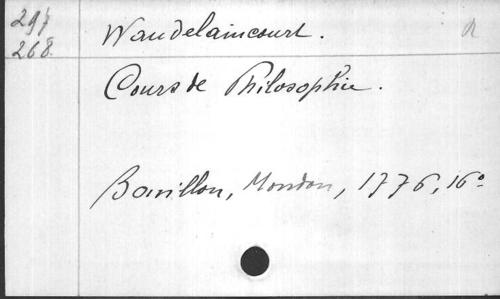 297 Wandelaincourt. R
268.
Cours de Philosophie.
Bouillon, Mondon, 1776, 16°